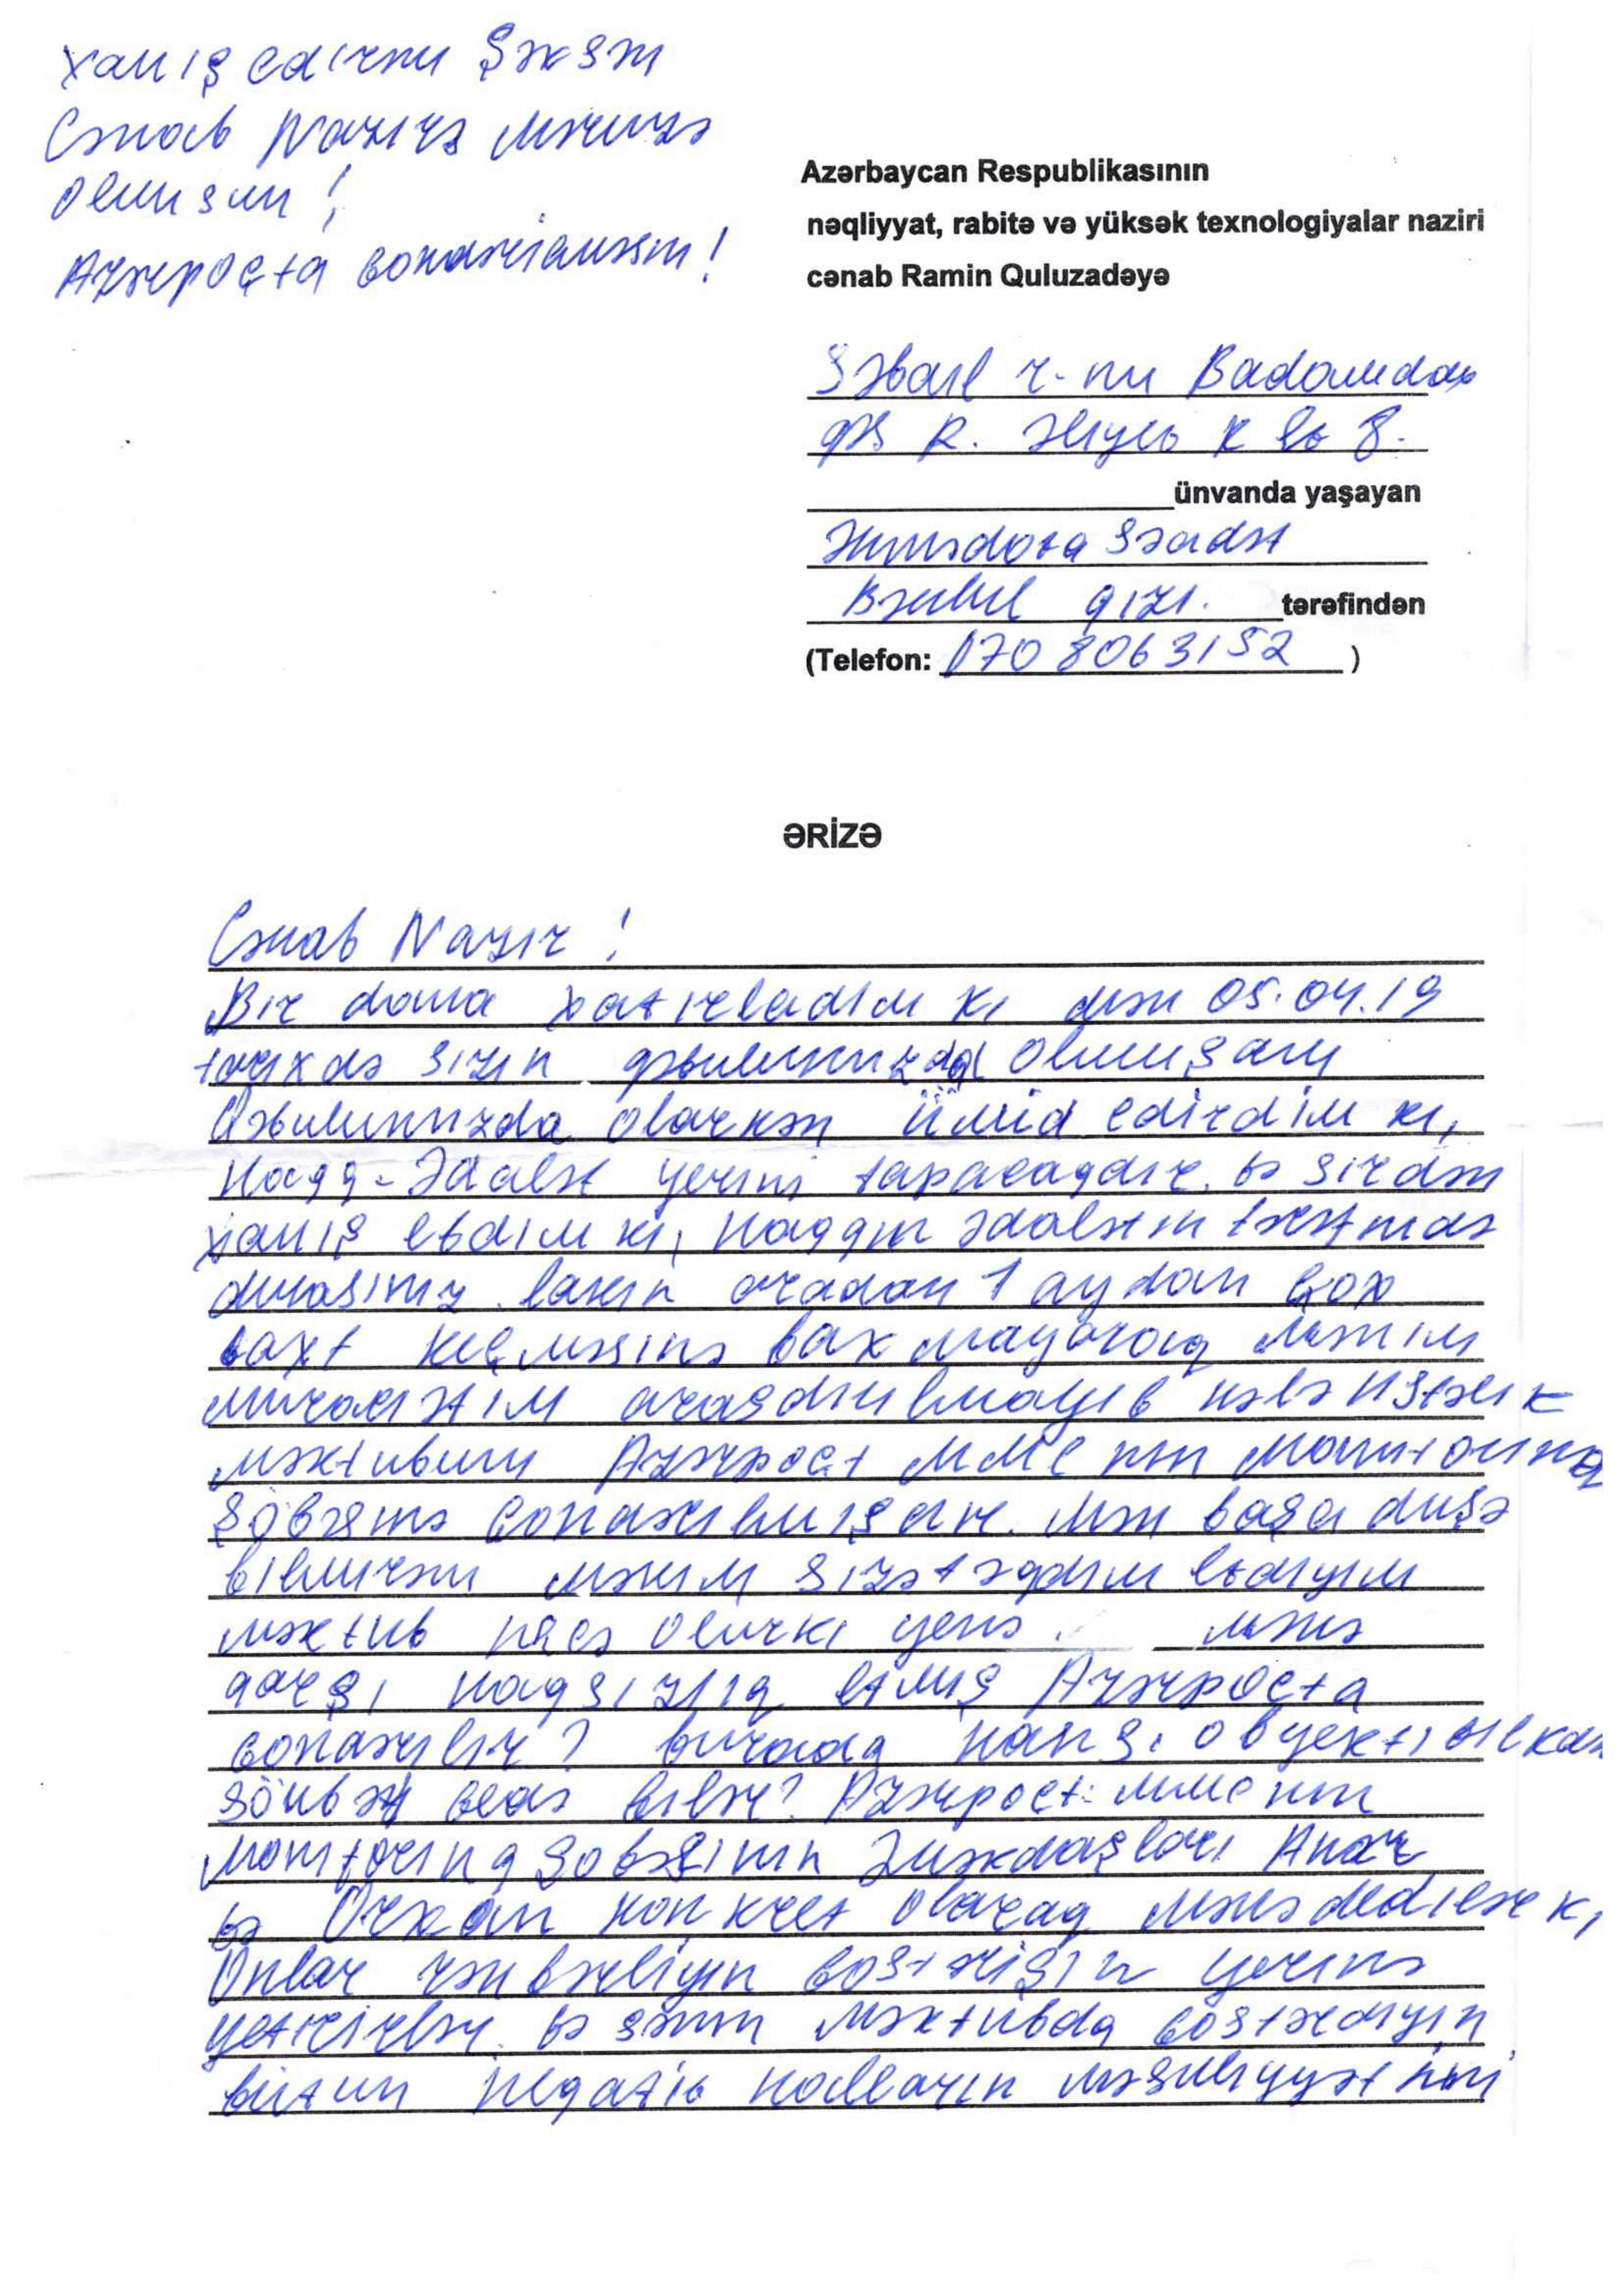 Xahiş edirəm Şəxsən
Cənab Nazirə məruzə
olunsun!
Azərpoçta göndərilməsin!
Azərbaycan Respublikasının
nəqliyyat, rabitə və yüksək texnologiyalar naziri
cənab Ramin Quluzadəyə
Səbail r-nu Badamdar
qəs R. Əliyev k ev 8.
ünvanda yaşayan
Əhmədova Səadət
qızı. tərəfindən
(Telefon: 070 8063152 )
ƏRİZƏ
Cənab Nazir!
Bir daha xatırladım ki mən 05.04.19
tarixdə sizin qəbulunuzda olmuşam
Qəbulunuzda olarkən ümid edirdim ki,
Haqq-Ədalət yerini tapacaqdır. və sizdən
xahiş etdim ki, haqqın ədalətin tərəfində
durasınız. lakin aradan 1 aydan çox
vaxt keçməsinə baxmayaraq mənim
müraciətim araşdırılmayıb hələ üstəlik
məktubum Azərpoçt MMC nin Monitorinq
şöbəsinə göndərilmişdir. Mən başa düşə
bilmirəm mənim sizə təqdim etdiyim
məktub necə olurki yenə mənə
qarşı haqsızlıq etmiş Azərpoçta
göndərilir? burada hansı obyektivlikdən
söhbət gedə bilər? Azərpoçt MMC nin
Monitorinq şöbəsinin Əməkdaşları Anar
və Orxan konkret olaraq mənə dedilər ki,
Onlar rəhbərliyin göstərişin yerinə
yetirirlər. və sənin məktubda göstərdiyin
bütün neqativ halların məsuliyyətini